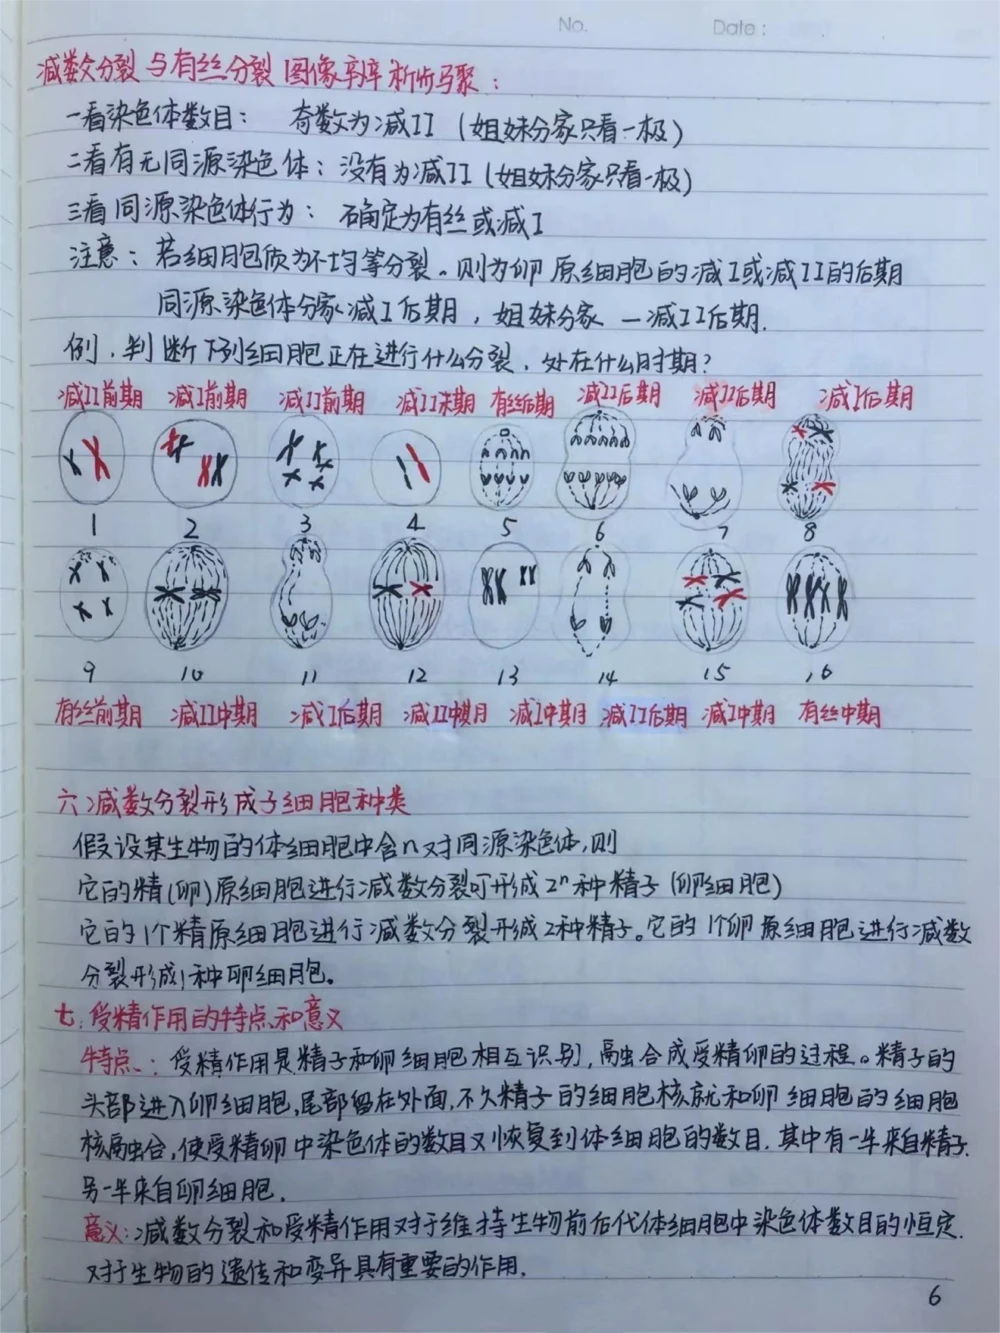 No.
Date:
减数分裂与有丝分裂图像辨析步骤:
一看染色体数目: 奇数为减II (姐妹分家只看一极)
二看有无同源染色体: 没有为减II (姐妹分家只看一极)
三看同源染色体行为: 确定为有丝或减I
注意: 若细胞质为不均等分裂。则为卵原细胞的减I或减II的后期
同源染色体分家减I后期, 姐妹分家 — 减II后期.
例. 判断下列细胞正在进行什么分裂, 处在什么时期?
减II前期 减I前期 减II前期 减II末期 有丝后期 减II后期 减II后期 减I后期
1 2 3 4 5 6 7 8
9 10 11 12 13 14 15 16
有丝前期 减II中期 减I后期 减II中期 减I中期 减II后期 减I中期 有丝中期
六 减数分裂形成子细胞种类
假设某生物的体细胞中含n对同源染色体,则
它的精(卵)原细胞进行减数分裂可形成2ⁿ种精子(卵细胞)
它的1个精原细胞进行减数分裂形成2种精子。它的1个卵原细胞进行减数
分裂形成1种卵细胞。
七. 受精作用的特点和意义
特点: 受精作用是精子和卵细胞相互识别, 融合成受精卵的过程。精子的
头部进入卵细胞,尾部留在外面,不久精子的细胞核就和卵细胞的细胞
核融合,使受精卵中染色体的数目又恢复到体细胞的数目. 其中有一半来自精子.
另一半来自卵细胞.
意义: 减数分裂和受精作用对于维持生物前后代体细胞中染色体数目的恒定.
对于生物的遗传和变异具有重要的作用.
6